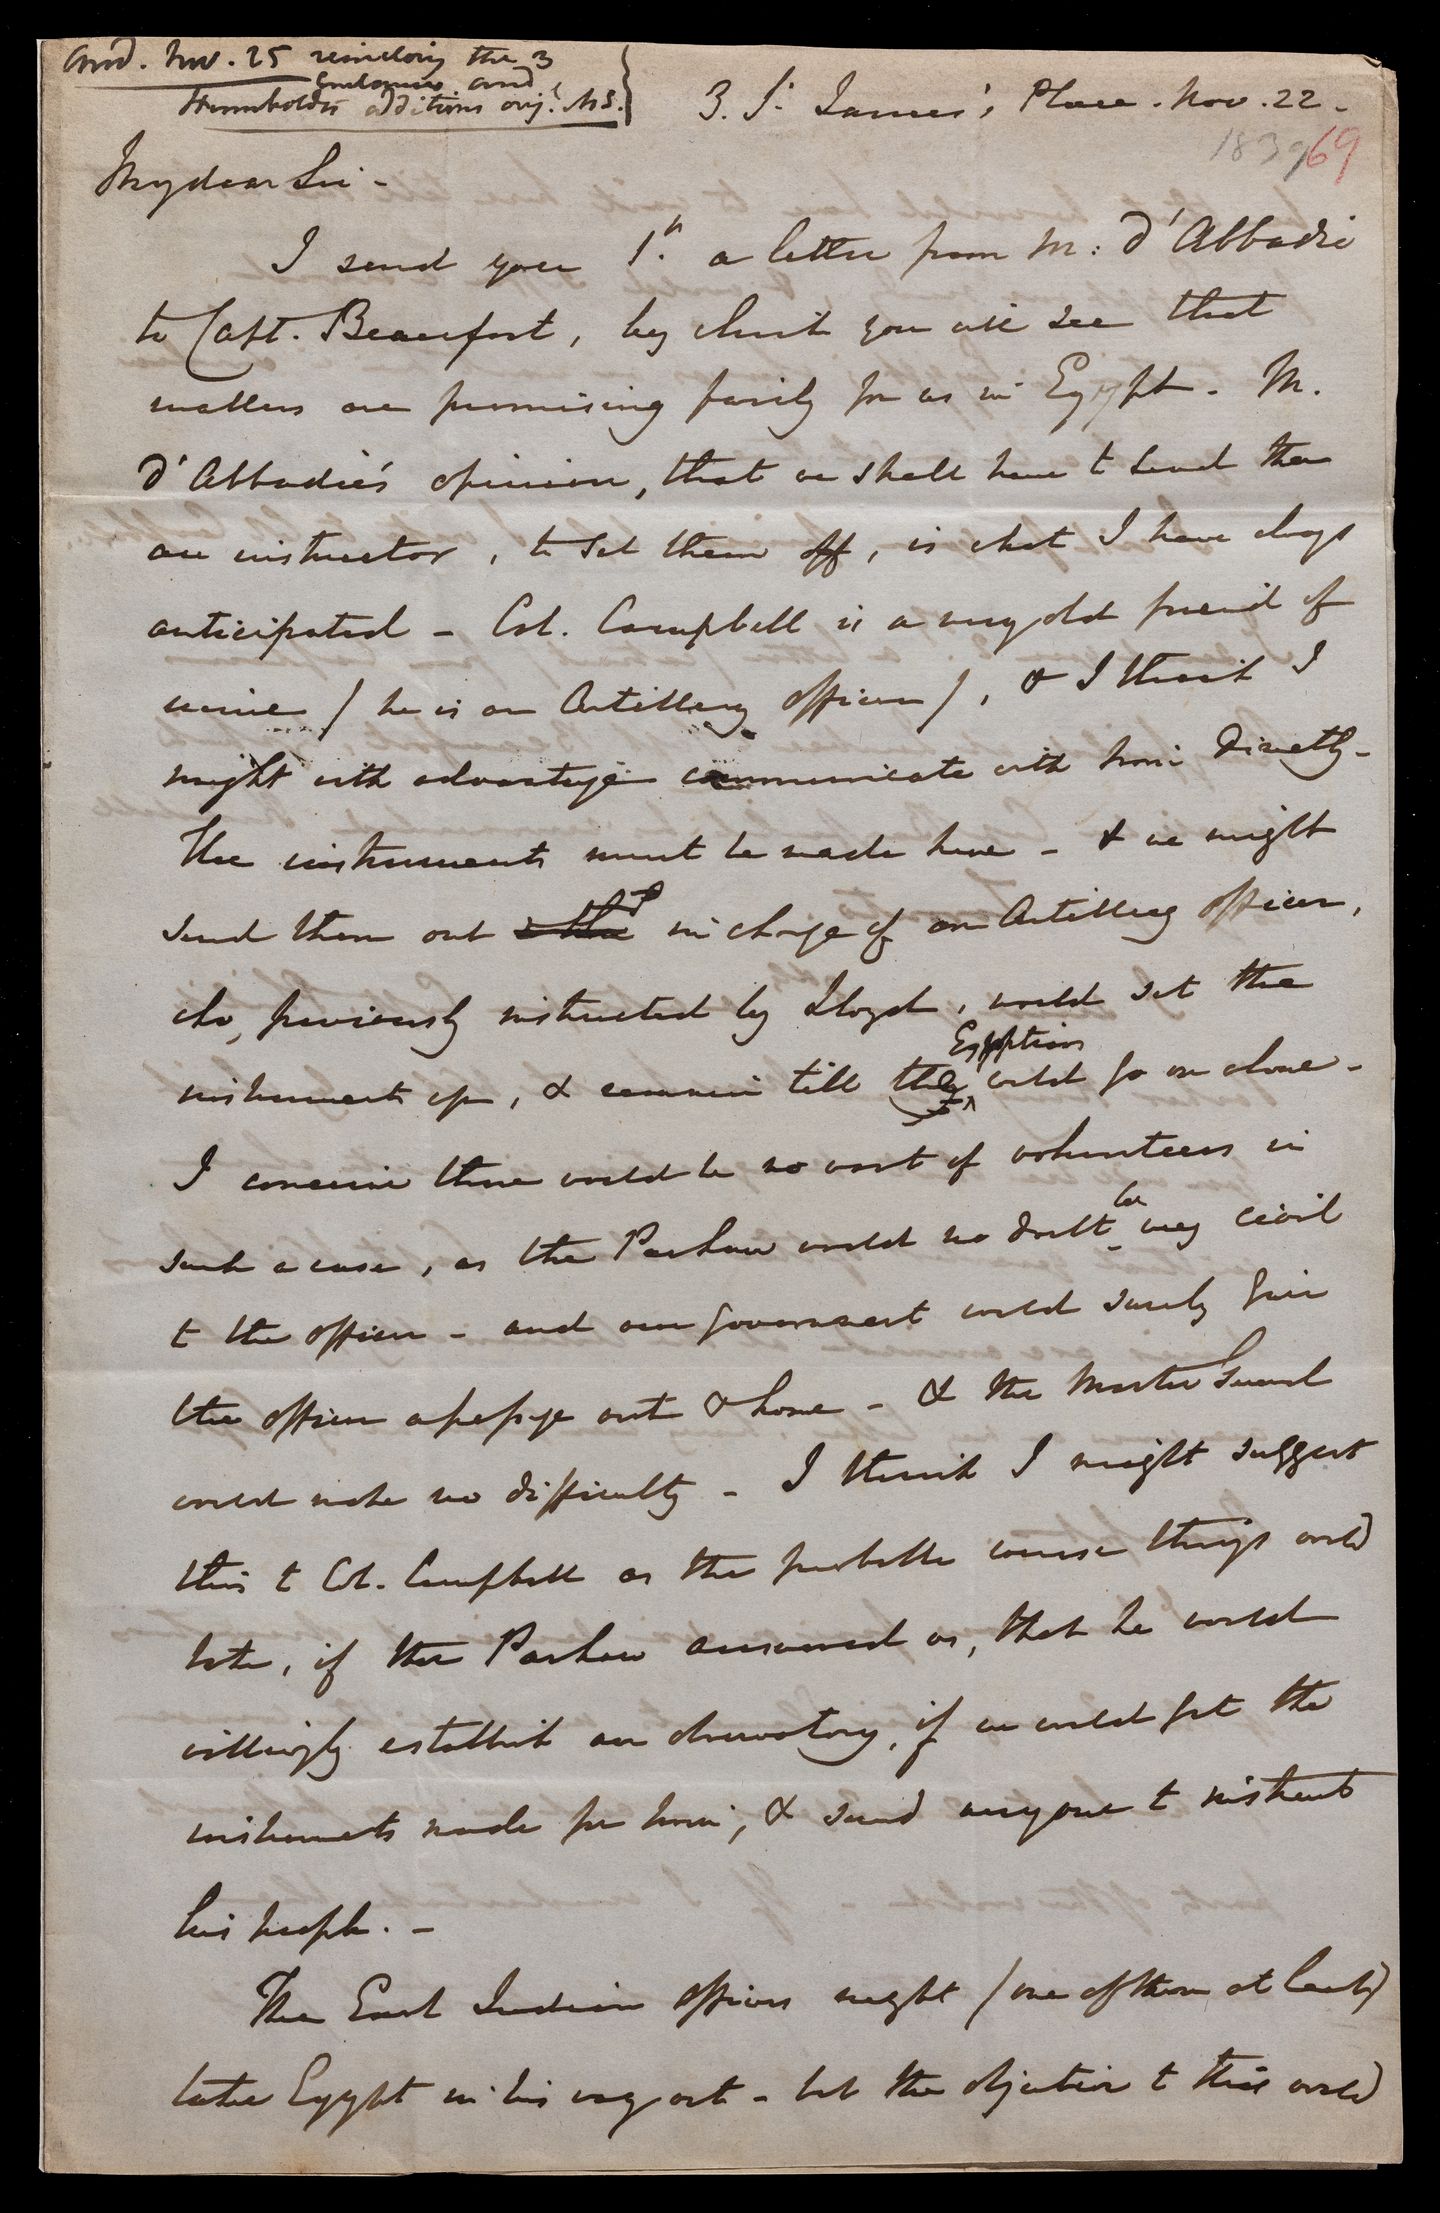 Ansd. Nov. 25 returning the 3
Enclosures and
Humboldts additions orig. MS.
3. St. James's Place. Nov. 22 -
1839 69
My dear Sir -
I send you 1st. a letter from M: d'Abbadie
to Capt. Beaufort, by which you will see that
matters are promising fairly for us in Egypt - M.
d'Abbadie's opinion, that we shall have to send them
an instructor, to set them off, is what I have always
anticipated - Col. Campbell is a very old friend of
mine / he is an Artillery officer /, & I think I
might with advantage communicate with him directly -
The instruments must be made here - & we might
send them out in charge of an Artillery officer,
who, previously instructed by Lloyd, would set the
Egyptians
instruments up, & remain till they could go on alone -
I conceive there would be no want of volunteers in
be
such a case, as the Pashaw would no doubt very civil
to the officer - and our Government would surely give
the officer a passage out & home - & the Master General
would make no difficulty - I think I might suggest
this to Col. Campbell as the probable course things would
take, if the Pashaw answered us, that he would
willingly establish an observatory, if we would get the
instruments made for him, & send anyone to instruct
his people. -
The East Indian officers might / one of them at least)
take Egypt in his way out - but the objection to this would